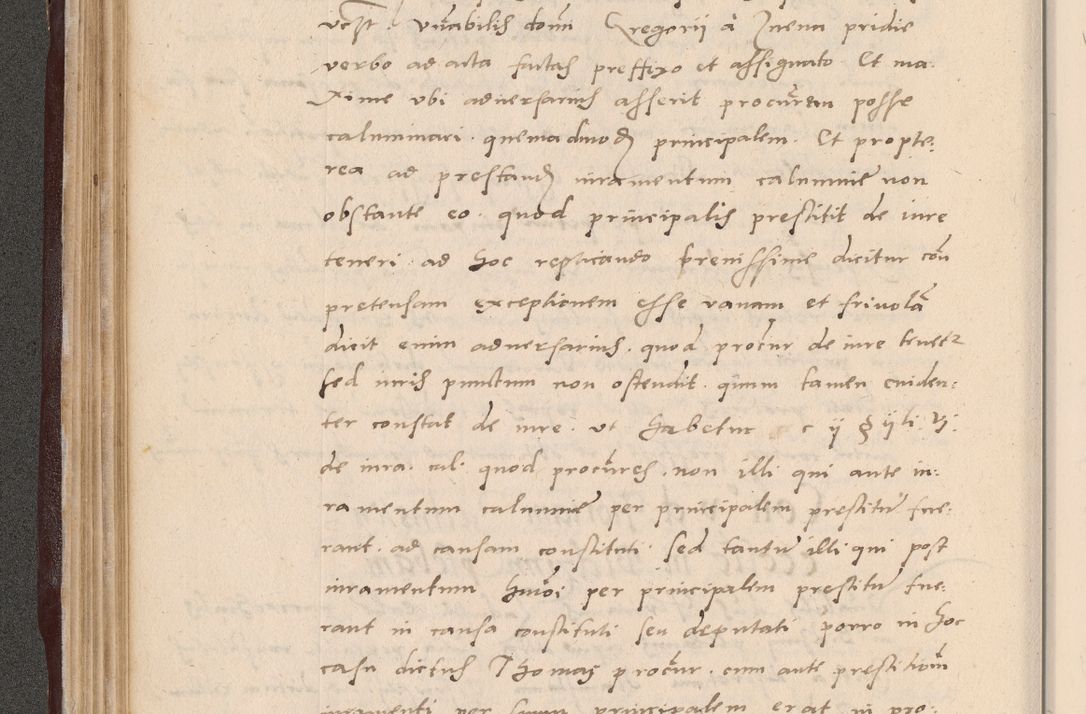 vt sup. vn̄abilis domi Gregorii a Inena pridie
verbo ad acta factas preffixo et assignato Et ma:
xime vbi aduersarius asserit procurem posse
calumniari. quemadmod principalem. Et propte:
rea ad prestand iuramentum calumnie non
obstante eo. quod principalis prestitit de iure
teneri. ad hoc replicando breuissime dicitur con
pretensam exceptionem esse vanam et friuolā
dicit enim aduersarius. quod procur̄ de iure tenetr
sed iuris punctum non ostendit. quum tamen euiden:
ter constat de iure. vt habetur c ij § ij li vj.
de iura. cal. quod procures. non illi qui ante iu:
ramentum calumnie per principalem prestitū fue:
rant. ad causam constituti. sed tantū illi qui post
iuramentum huiōi per principalem prestitū fue:
rant in causa constituti seu deputati porro in hoc
casu dictus Thomas procur̄. cum ante prestitiōm
iuramenti per suum principalem erat in pro: